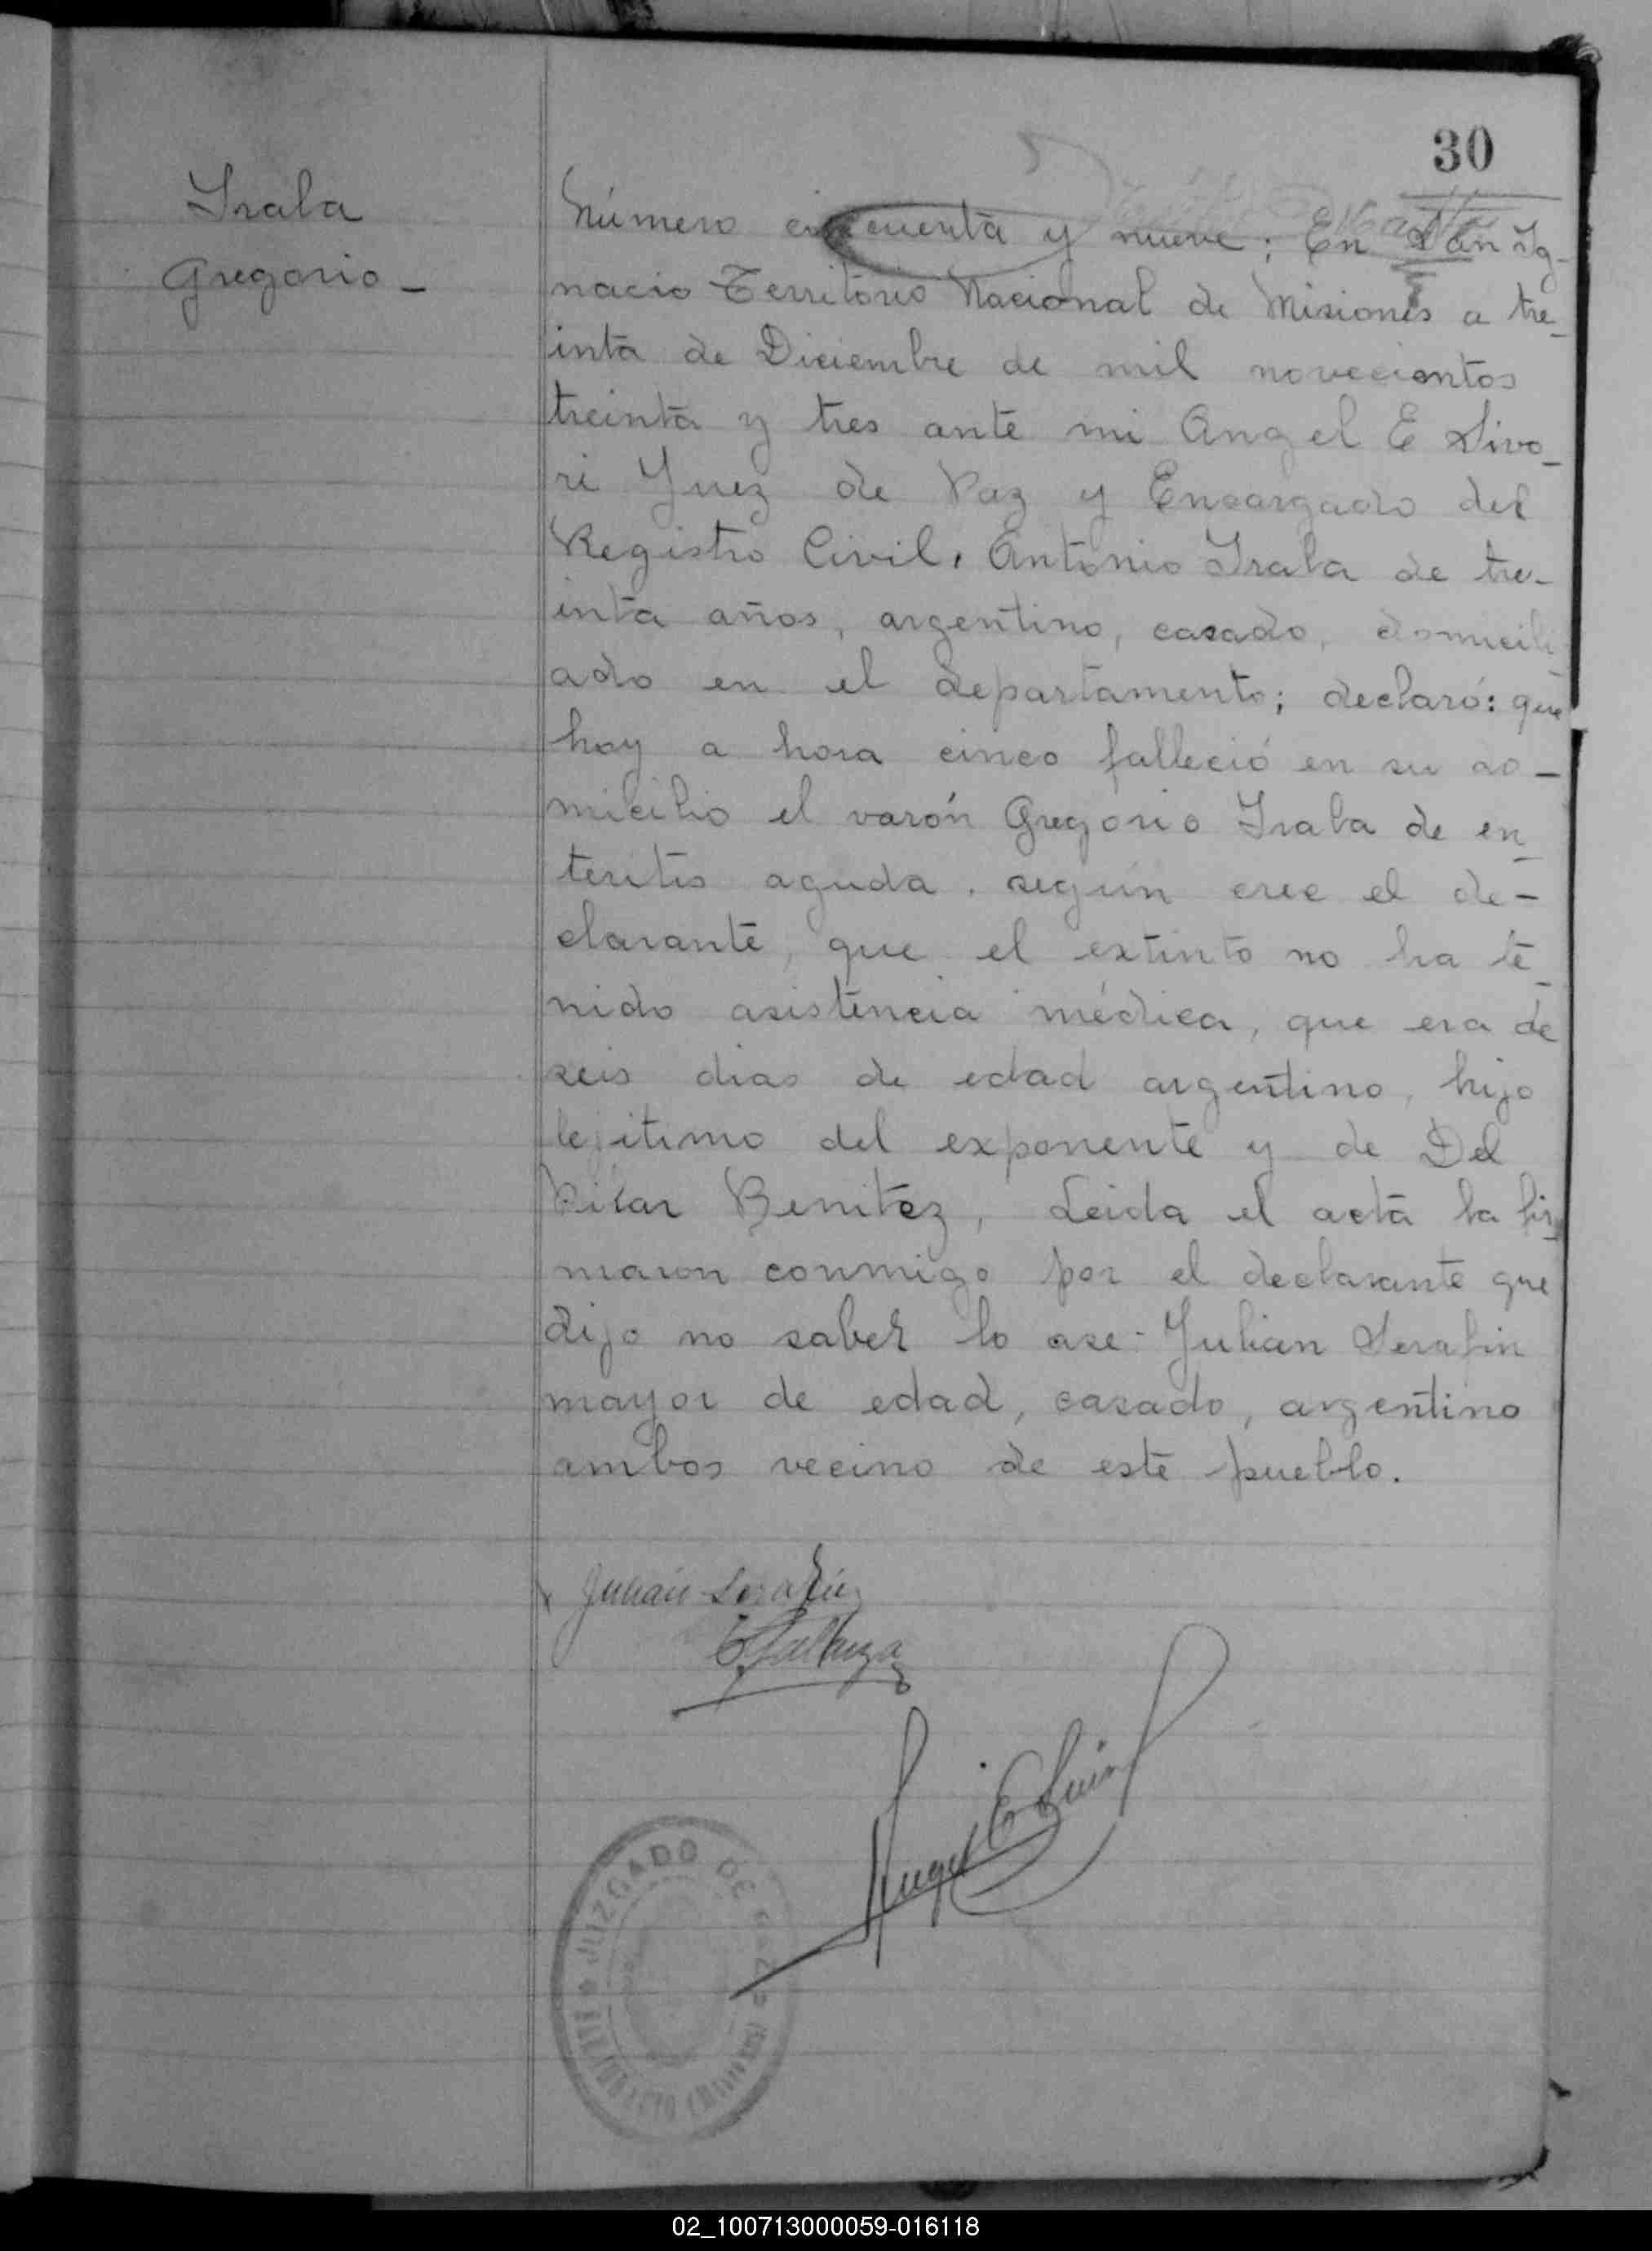 30
Irala
Gregorio -
Número cincuenta y nueve; En San Ig-
nacio Territorio Nacional de Misiones a tre-
inta de Diciembre de mil novecientos
treinta y tres ante mi Angel E Sivo-
ri Juez de Paz y Encargado del
Registro Civil, Antonio Irala de tre-
inta años, argentino, casado, domicili-
ado en el departamento; declaró: que
hoy a hora cinco falleció en su do-
micilio el varón Gregorio Irala de en-
teritis aguda. según cree el de-
clarante, que el extinto no ha te-
nido asistencia médica, que era de
seis dias de edad argentino, hijo
lejitimo del exponente y de Del
Pilar Benitez, Leida el acta la fir-
maron conmigo por el declarante que
dijo no saber lo ase Julian Serafin
mayor de edad, casado, argentino
ambos vecino de este pueblo.
Julian Serafin
Angel E Sivori
JUZGADO DE PAZ
02_100713000059-016118